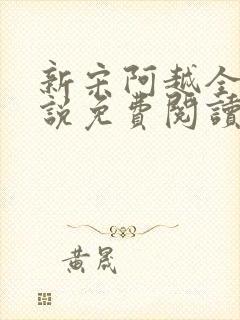 新宋阿越全
說免費閱讀
黃晟